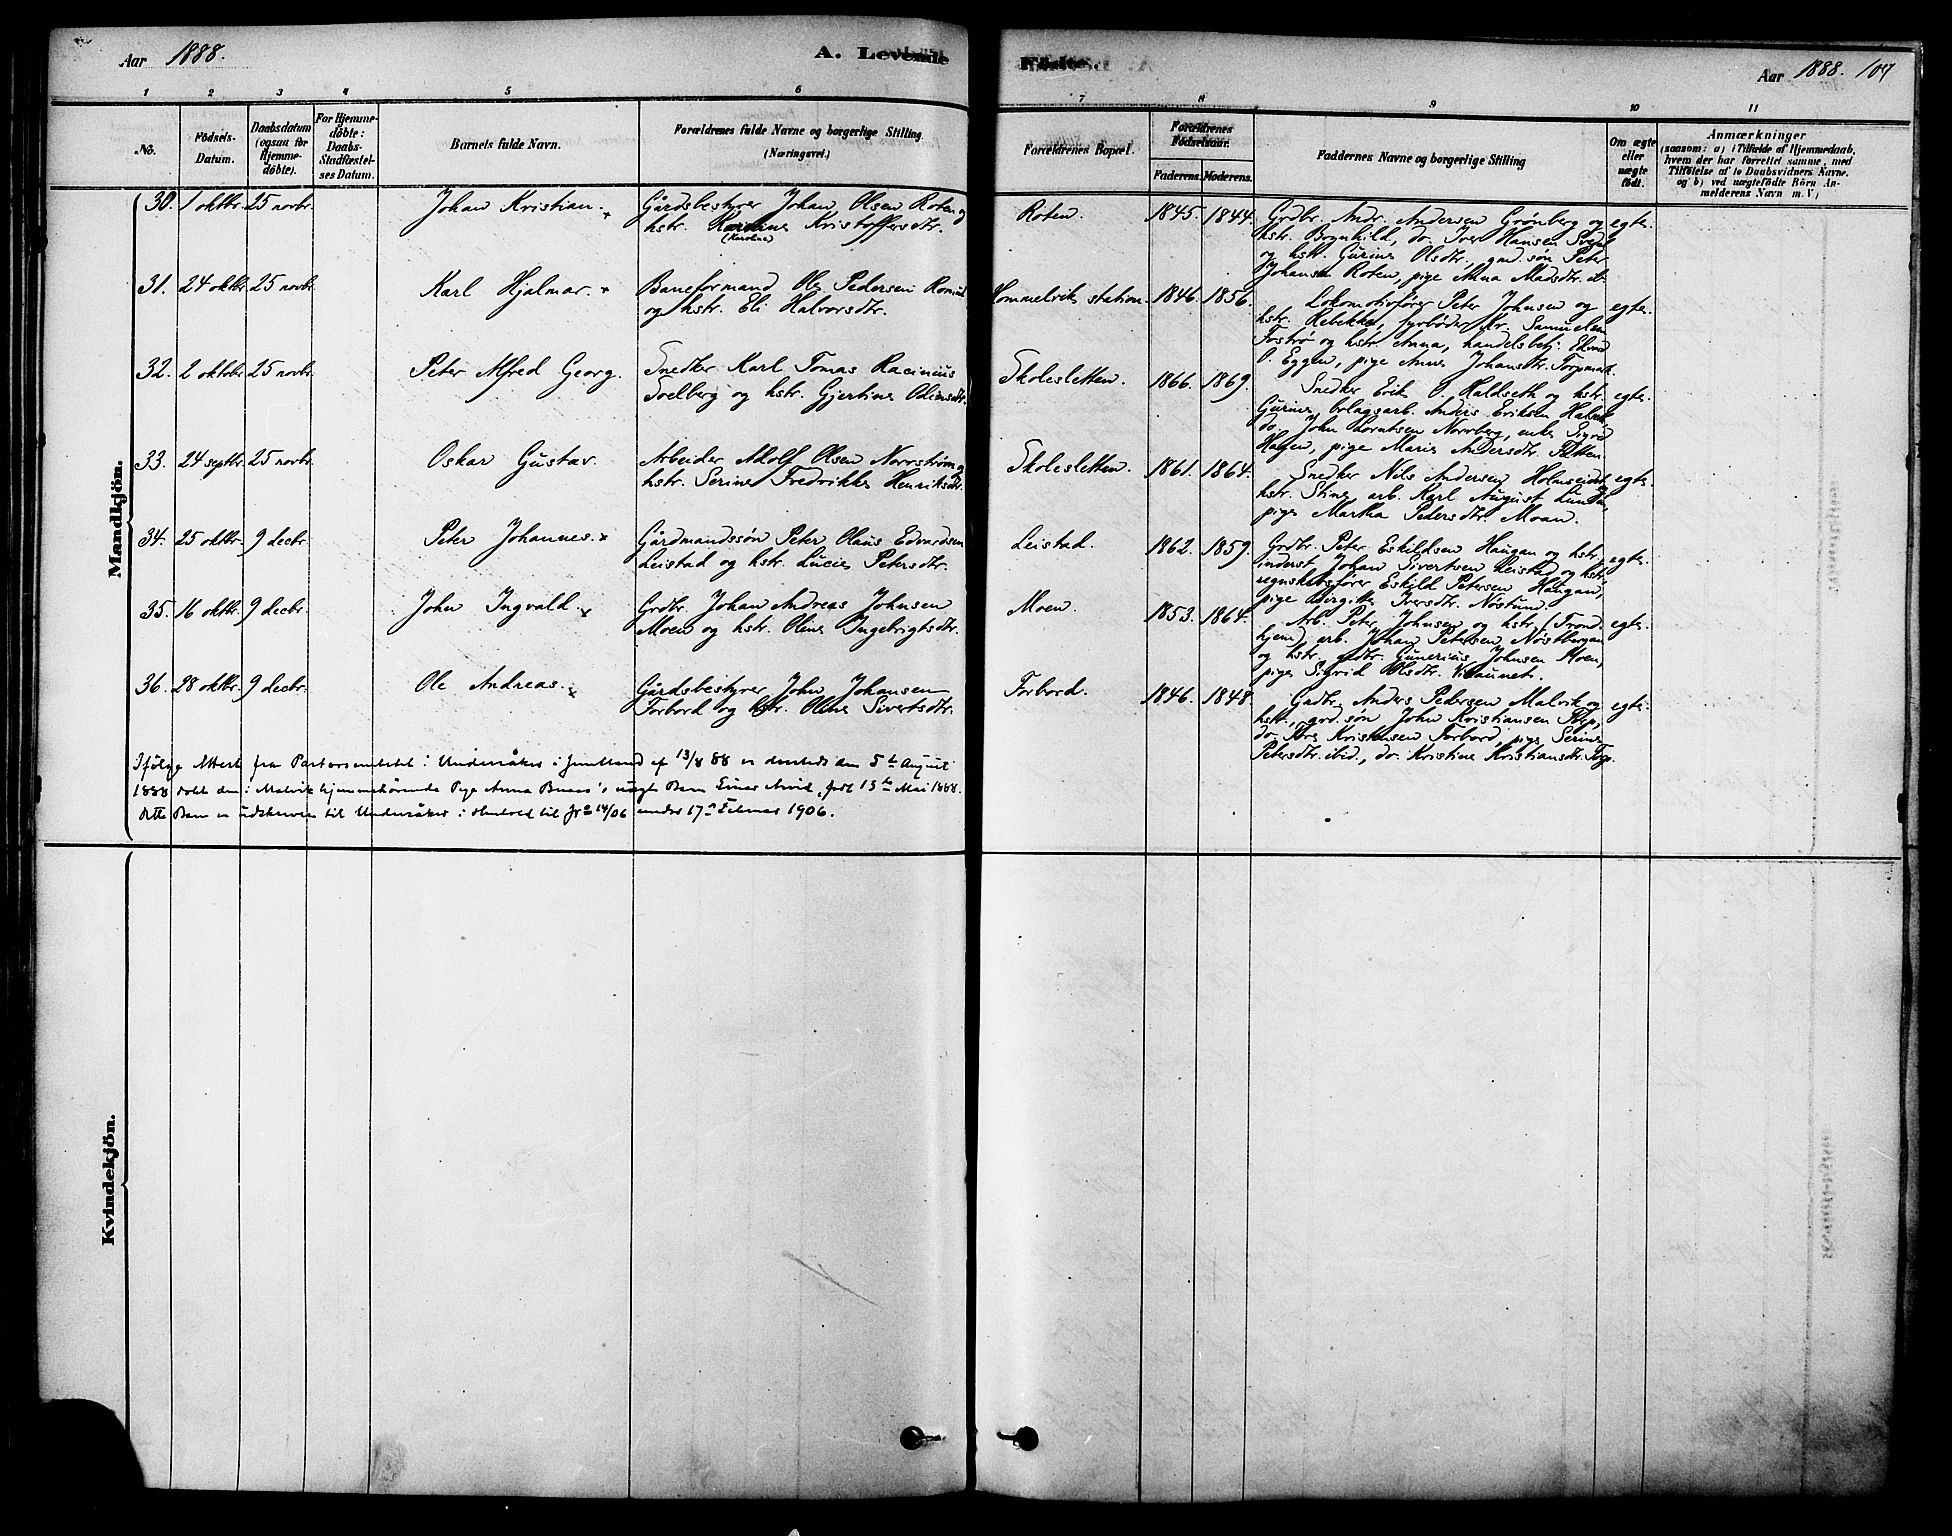 Aar 1888. A. Levende
Fødte. Aar 1888. 107
1 2 3 4 5 6
7 8 9 10 11
No. Födsels-Datum. Daabsdatum (ogsaa for Hjemme-døbte). For Hjemme-døbte: Daabs-Stadfæstel-ses Datum. Barnets fulde Navn. Forældrenes fulde Navne og borgerlige Stilling. (Næringsvei.)
Forældrenes Bopæl. Forældrenes Fødselsaar. Faderens. Moderens. Faddernes Navne og borgerlige Stilling Om ægte eller uægte født. Anmærkninger
(saasom: a) i Tilfælde af Hjemmedaab,
hvem der har forrettet samme, med
Tilføielse af to Daabsvidners Navne,
og b) ved uægtefødte Börn An-
melderens Navn m. V.)
Mandkjön.
30. 1 oktbr. 25 novbr. Johan Kristian. Gårdsbestyrer Johan Olsen Roten og
hstr. Kristoffersdtr.
(Karolina)
Roten. 1845. 1844. Grdbr. Andr. Andersen Grønberg og egte.
hstr. Brynhild, do. Iver Hansen
og hstr. Gurine Olsdtr., grd.søn Peter
Johansen Roten, pige Anna Madsdtr. ib.
31. 24 oktbr. 25 novbr. Karl Hjalmar. Baneformand Ole Pedersen
og hstr. Eli Halvorsdtr.
Hommelvik station. 1846. 1856. Lokomotivfører Peter Johnsen og egte.
hstr. Rebekka, fyrbøder Kr. Samuelsen
og hstr. Anna, handelsbetj.
O. Eggen, pige Anne Johansdtr.
32. 2 oktbr. 25 novbr. Peter Alfred Georg. Snedker Karl Tomas Racinius
Solberg og hstr. Gjertine
Skolesletten. 1866. 1869. Snedker Erik O. Haldseth og hstr. egte.
Gurine, bolagsarb. Anders Eriksen
do. John Norrberg, enke Sigrid
Hagen, pige Marie Andersdtr.
33. 24 septbr. 25 novbr. Oskar Gustav. Arbeider Adolf Olsen Norrstrøm og
hstr. Serine Fredrikke Henriksdtr.
Skolesletten. 1861. 1864. Snedker Nils Andersen egte.
hstr. Stine, arb. Karl August
pige Martha Pedersdtr. Moan.
34. 25 oktbr. 9 decbr. Peter Johannes. Gårdmandssøn Peter Olaus Edvardsen
Leistad og hstr. Lucie Petersdtr.
Leistad. 1862. 1859. Grdbr. Peter Eskildsen Haugan og hstr., egte.
inderst Johan Sivertsen Leistad og hstr.
regnskabsfører Eskild Petersen Haugan,
pige Birgitte Iversdtr.
35. 16 oktbr. 9 decbr. John Ingvald. Grdbr. Johan Andreas Johnsen
Moen og hstr. Oline Ingebrigtsdtr.
Moen. 1853. 1864. Arb. Peter Johnsen og hstr. (Trond- egte.
hjem), arb. Johan Petersen
og hstr. grdbr. Gunerius Johnsen Moen,
pige Sigrid Olsdtr.
36. 28 oktbr. 9 decbr. Ole Andreas. Gårdsbestyrer John Johansen
Forbord og hstr. Oline Sivertsdtr.
Forbord. 1846. 1848. Grdbr. Anders Pedersen Malvik og egte.
hstr., grd.søn John Kristiansen
do. Kristensen Forbord, pige Serine
Petersdtr. ibid., do. Kristine Kristiansdtr.
Ifølge Attest fra Pastorsembetet i Undersåker i Jemtland af 13/8 88 er derstede den 5te August
1888 døbt den i Malvik hjemmehørende Pige Anna uægt. Barn Einar Arvid, født 13de Mai 1888.
Dette Barn er udskrevet til Undersåker i Henhold til Jr. 14/06 under 17de Februar 1906.
Kvindekjön.